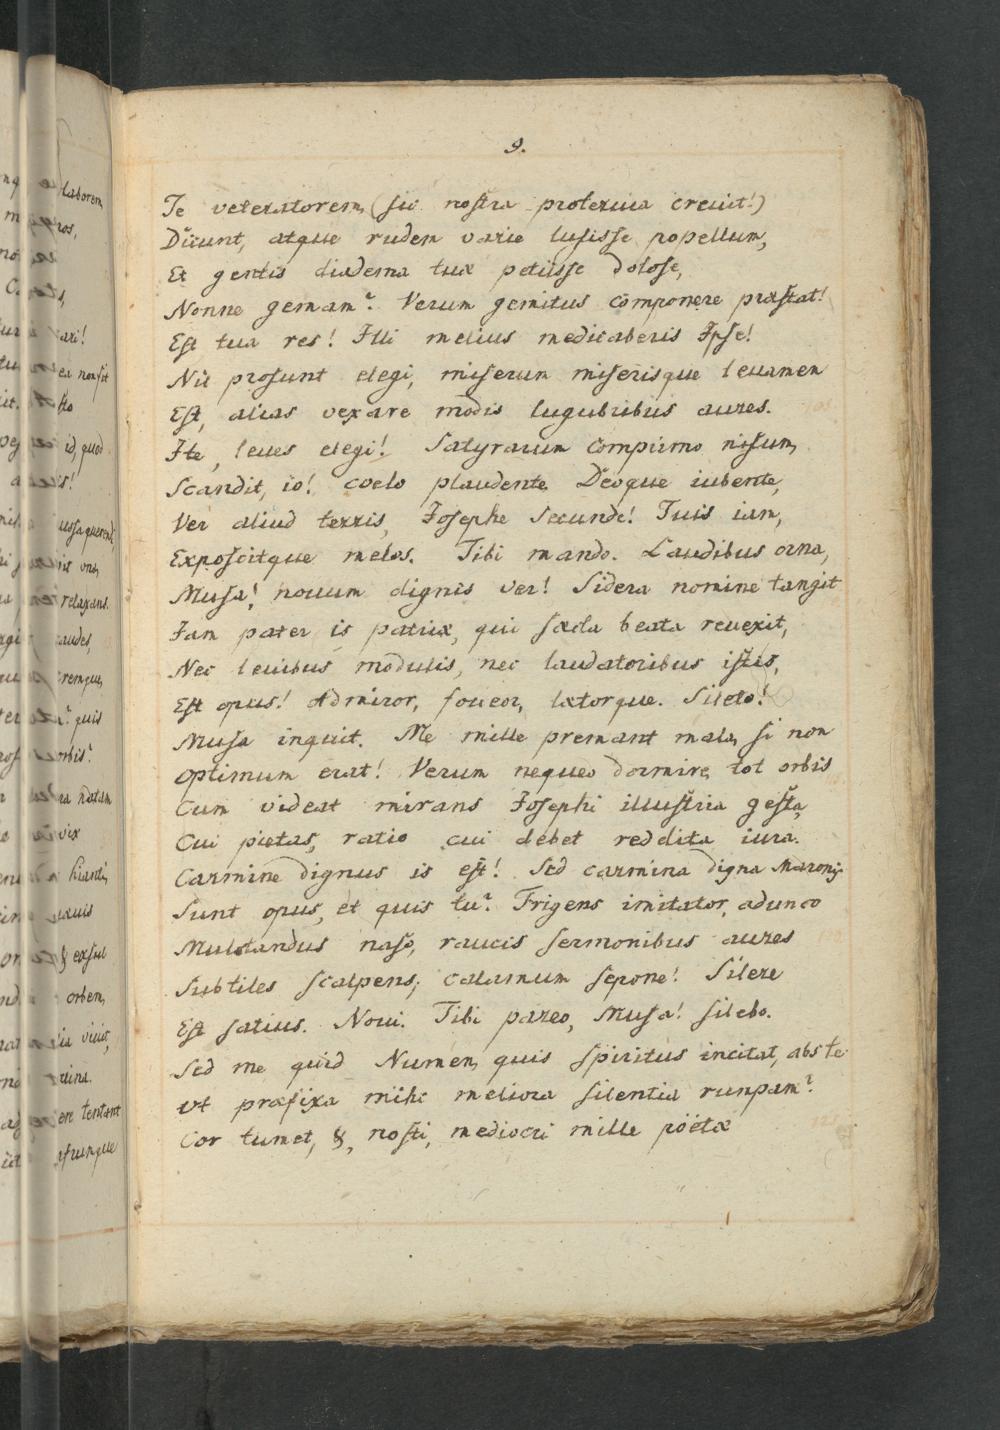 9.
Te veteratorem (sic nostra proteruia creuit!)
Dicunt, atque rudem varie lusisse popellum,
Et gentis diadema tuæ petiisse dolose,
Nonne gemam? Verum gemitus componere præstat!
Est tua res! Illi melius medicaberis Ipse!
Nil prosunt elegi, miserum miserisque leuamen
Est, alias vexare modis lugubribus aures.
Ite, leues elegi! Satyrarum comprimo nisum,
Scandit, io! coelo plaudente Deoque iubente,
Ver aliud terris, Josephe Secunde! Tuis iam,
Exposcitque melos. Tibi mando. Laudibus orna,
Musa! nouum dignis ver! Sidera nomine tangit
Jam pater is patriæ, qui sæcla beata reuexit,
Nec leuibus modulis, nec laudatoribus istis,
Est opus! Admiror, foueor, lætorque. Sileto!
Musa inquit. Me mille premant mala, si non
Optimum erat! Verum nequeo dormire, tot orbis
Cum videat mirans Josephi illustria gesta,
Cui pietas, ratio cui debet reddita iura.
Carmine dignus is est! Sed carmina digna Maronis
Sunt opus, et quis tu? Frigens imitator, adunco
Mulctandus naso, raucis sermonibus aures
Subtiles scalpens, calamum sepone! Silere
Est satius. Noui. Tibi pareo, Musa! silebo.
Sed me quid Numen, quis spiritus incitat, abs te
Vt præfixa mihi meliora silentia rumpam?
Cor tumet, &, nosti, mediocri mille poëtæ
laborem,
ros,
ari!
ea non sit
sto
id, quod
s!
ussa querent,
relaxans.
audes,
remque,
quis
orbis?
ra notam
vix
hianti,
exsul
orbem,
ere tentant